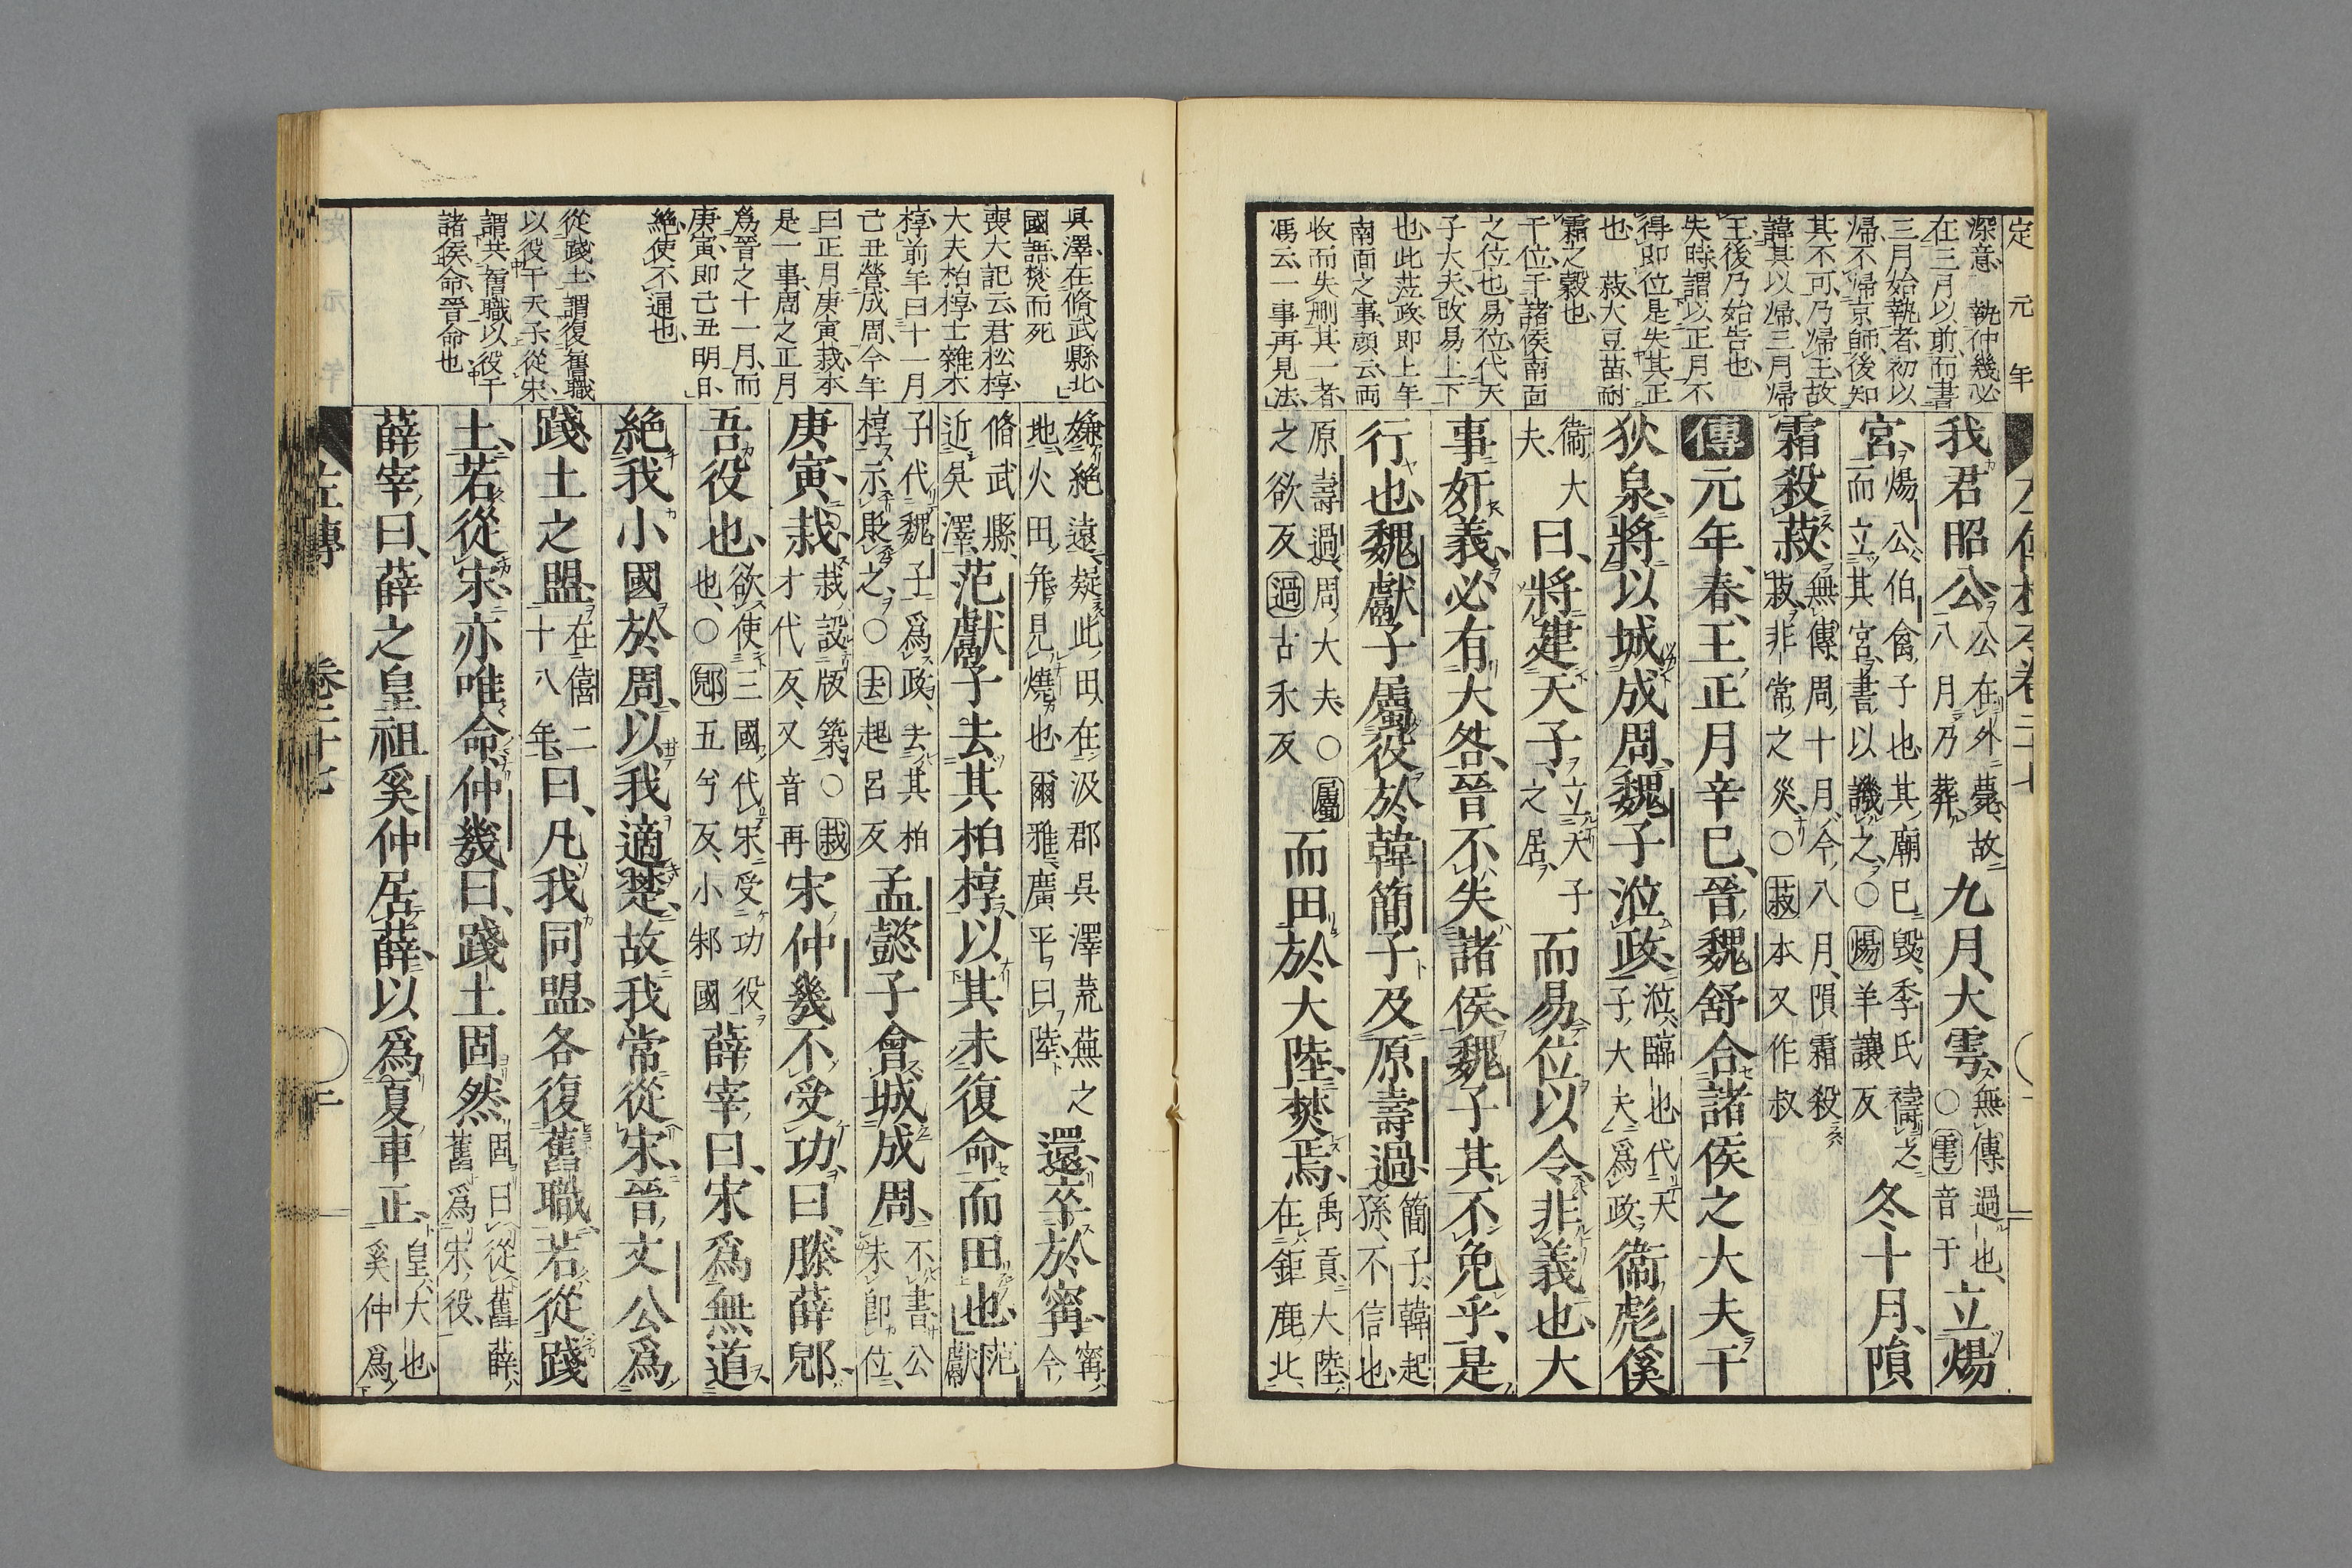 定元年
深意　執仲幾必
在三月以前而書
三月始執者初以
歸不歸京師後知
其不可乃歸王故
諱其以歸三月歸
王後乃始告也
失時謂以正月不
得即位是失其正
也　菽大豆苗耐
霜之穀也
干位干諸侯南面
之位也易位代天
子大夫敃易上下
也此涖政即上年
南面之事顔云兩
收而失刪其一者
馮云一事再見法
我君昭公公在外薨故八月乃葬九月大雩無傳過也○雩音于立煬
宮煬公伯禽子也其廟已毀季氏禱之而立其宮書以譏之○煬羊讓反冬十月隕
霜殺菽無傳周十月今八月隕霜殺菽非常之災○菽本又作叔
傳元年春王正月辛巳晉魏舒合諸侯之大夫于
狄泉將以城成周魏子涖政涖臨也代天子大夫爲政衞彪傒
衞大夫曰將建天子立天子之居而易位以令非義也大
事奸義必有大咎晉不失諸侯魏子其不免乎是
行也魏獻子屬役於韓簡子及原壽過簡子韓起孫不信也
原壽過周大夫○屬之欲反過古禾反而田於大陸焚焉禹貢大陸在鉅鹿北
吳澤在脩武縣北
國語焚而死
喪大記云君松椁
大夫柏椁士雜木
椁前年曰十一月
己丑營成周今年
曰正月庚寅栽本
是一事周之正月
爲晉之十一月而
庚寅即己丑明日
絶使不通也
從踐土謂復舊職
以役于天子從宋
謂共舊職以役于
諸侯命晉命也
嫌絶遠疑此田在汲郡吳澤荒蕪之地火田幷見燒也爾雅廣平曰陸還卒於甯甯今
脩武縣近吳澤范獻子去其柏椁以其未復命而田也范獻
子代魏子爲政去其柏椁示貶之○去起呂反孟懿子會城成周不書公未即位
庚寅栽栽設版築○栽才代反又音再宋仲幾不受功曰滕薛郳
吾役也欲使三國代宋受功役也○郳五兮反小邾國薛宰曰宋爲無道
絶我小國於周以我適楚故我常從宋晉文公爲
踐土之盟在僖二十八年曰凡我同盟各復舊職若從踐
土若從宋亦唯命仲幾曰踐土固然固曰從舊薛舊爲宋役
薛宰曰薛之皇祖奚仲居薛以爲夏車正皇大也奚仲爲
左傳　卷二十七　二